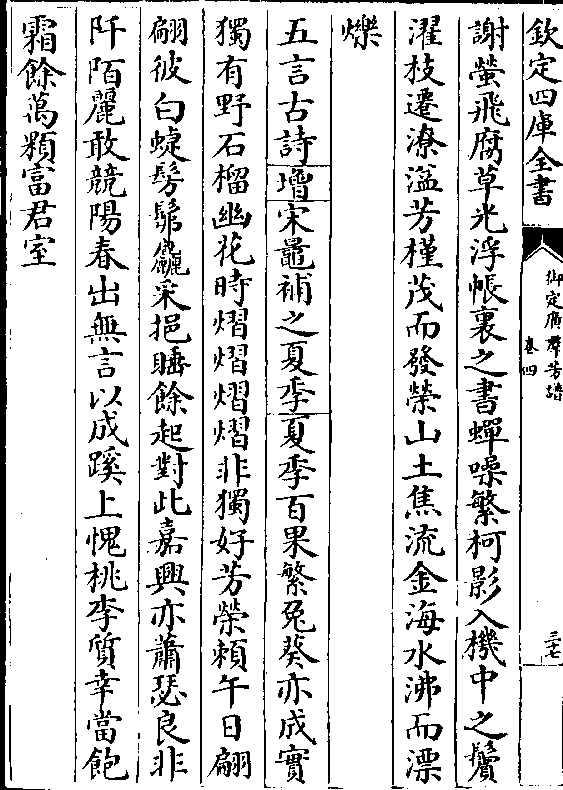 欽定四庫全書
御定廣羣芳譜
卷四
三七
謝螢飛腐草光浮帳裏之書蟬噪繁柯影入機中之鬢
濯枝遷潦溢芳槿茂而發榮山土焦流金海水沸而漂
爍
五言古詩增宋鼂補之夏季夏季百果繁兔葵亦成實
獨有野石榴幽花時熠熠熠熠非獨好芳榮賴午日翩
翩彼白蜨髣髴麤采挹睡餘起對此嘉興亦蕭瑟良非
阡陌麗敢競陽春出無言以成蹊上愧桃李質幸當飽
霜餘萬顆富君室